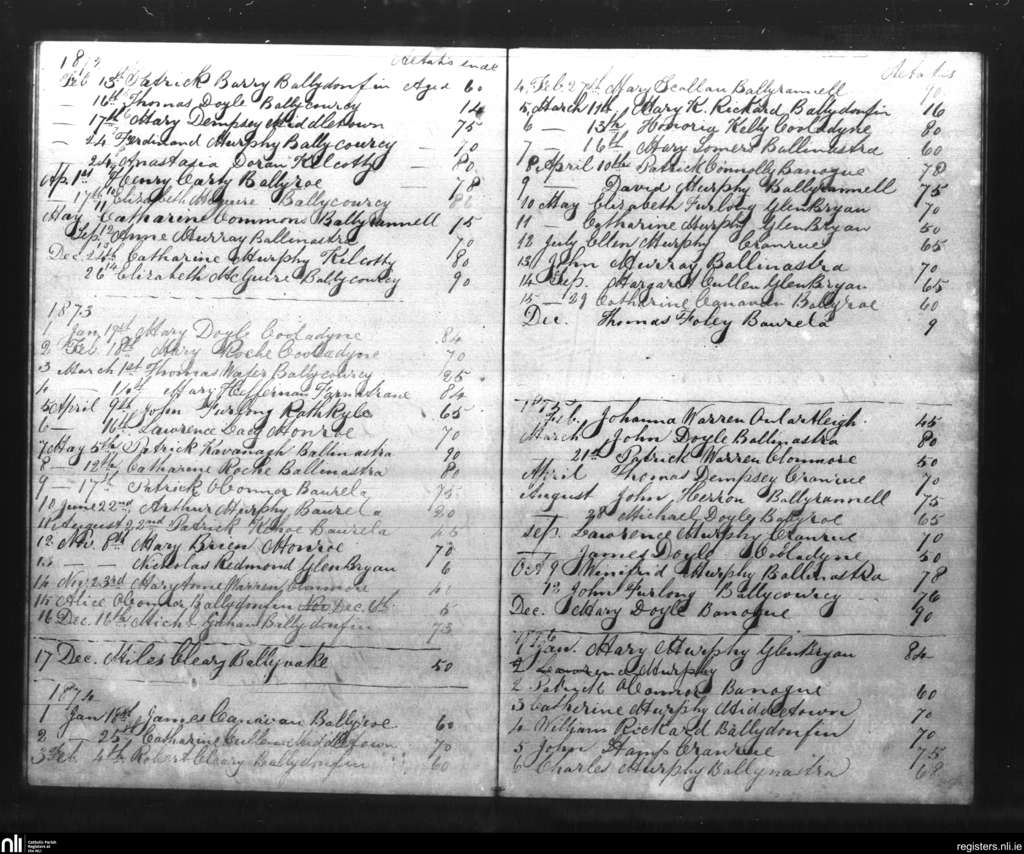 1872 Aetatis suae
Feb 13th Patrick Barry Ballydonfin Aged 60
— 16th Thomas Doyle Ballycourcy 14
— 17th Mary Dempsey Middletown 75
— 24 Ferdinand Murphy Ballycourcy — 70
— 24 Anastasia Doran Kilcotty — 80
Ap. 1st Henry Carty Ballyroe — 78
— 17th Elizabeth McGuire Ballycourcy 86
May 11 Catharine Commons Ballyrannell 15
Sep. 12 Anne Murray Ballinastra 70
Dec. 24th Catharine Murphy Kilcotty 80
26 Elizabeth McGuire Ballycourcy 90
1873
1 Jan 17th Mary Doyle Cooladyne 84
2 Feb 18th Mary Roche Cooladyne 70
3 March 1st Thomas Wafer Ballycourcy 25
4 — Mary Heffernan Farnastrane 84
5 April 9th John Furlong Rathkyle 65
6 — 16th Lawrence Lacy Monroe 70
7 May 5th Patrick Kavanagh Ballinastra 90
8 — 12th Catharine Roche Ballinastra 80
9 — 17th Patrick OConnor Baurela 75
10 June 22nd Arthur Murphy Baurela 20
11 August 22nd Patrick Kehoe Baurela 45
12 Nov. 8th Mary Brien Monroe 70
13 — — Nicholas Redmond GlenBryan 6
14 Nov 23rd Mary Anne Warren Clonmore 41
15 Alice OConnor Ballydonfin Nov Dec. 6th 5
16 Dec. 16th Michl. Gahan Ballydonfin 73
17 Dec. Miles Cleary Ballyvake 50
1874
1 Jan 18th James Canavan Ballyroe 60
2 — 25 Catharine Cullen Middletown 70
3 Feb 4th Robert Cleary Ballydonfin 60
Aetatis
4 Feb. 27th Mary Scallan Ballyrannell 70
5 March 11th Mary K. Rickard Ballydonfin 16
6 — 13th Honoria Kelly Cooladyne 80
7 — 16th Mary Somers Ballinastra 60
8 April 10th Patrick Connolly Banogue 78
9 — David Murphy Ballyrannell 75
10 May Elizabeth Furlong GlenBryan 70
11 — Catharine Murphy GlenBryan 50
12 July Ellen Murphy Cranrue 65
13 John Murray Ballinastra 70
14 Sep. Margaret Cullen GlenBryan 65
15 — 29 Catherine Canavan Ballyroe 60
Dec. Thomas Foley Baurela 9
1875
Feb. Johanna Warren Oulartleigh 45
March John Doyle Ballinastra 80
21st Patrick Warren Clonmore 50
April Thomas Dempsey Cranrue 70
August John Herron Ballyrannell 75
— 28 Michael Doyle Ballyroe 65
Sep. Lawrence Murphy Cranrue 70
— James Doyle Cooladyne 50
Oct 9 Winifrid Murphy Ballinastra 78
12 John Furlong Ballycourcy 76
Dec. Mary Doyle Banogue 90
1876
1 Jan. Mary Murphy GlenBryan 84
2 Lawrence Murphy
2 Patrick OConnor Banogue 60
3 Catherine Murphy Middletown 70
4 William Rickard Ballydonfin 70
5 John Stamp Cranrue 75
6 Charles Murphy Ballynastra 68
nli
Catholic Parish
Registers at
the NLI
registers.nli.ie